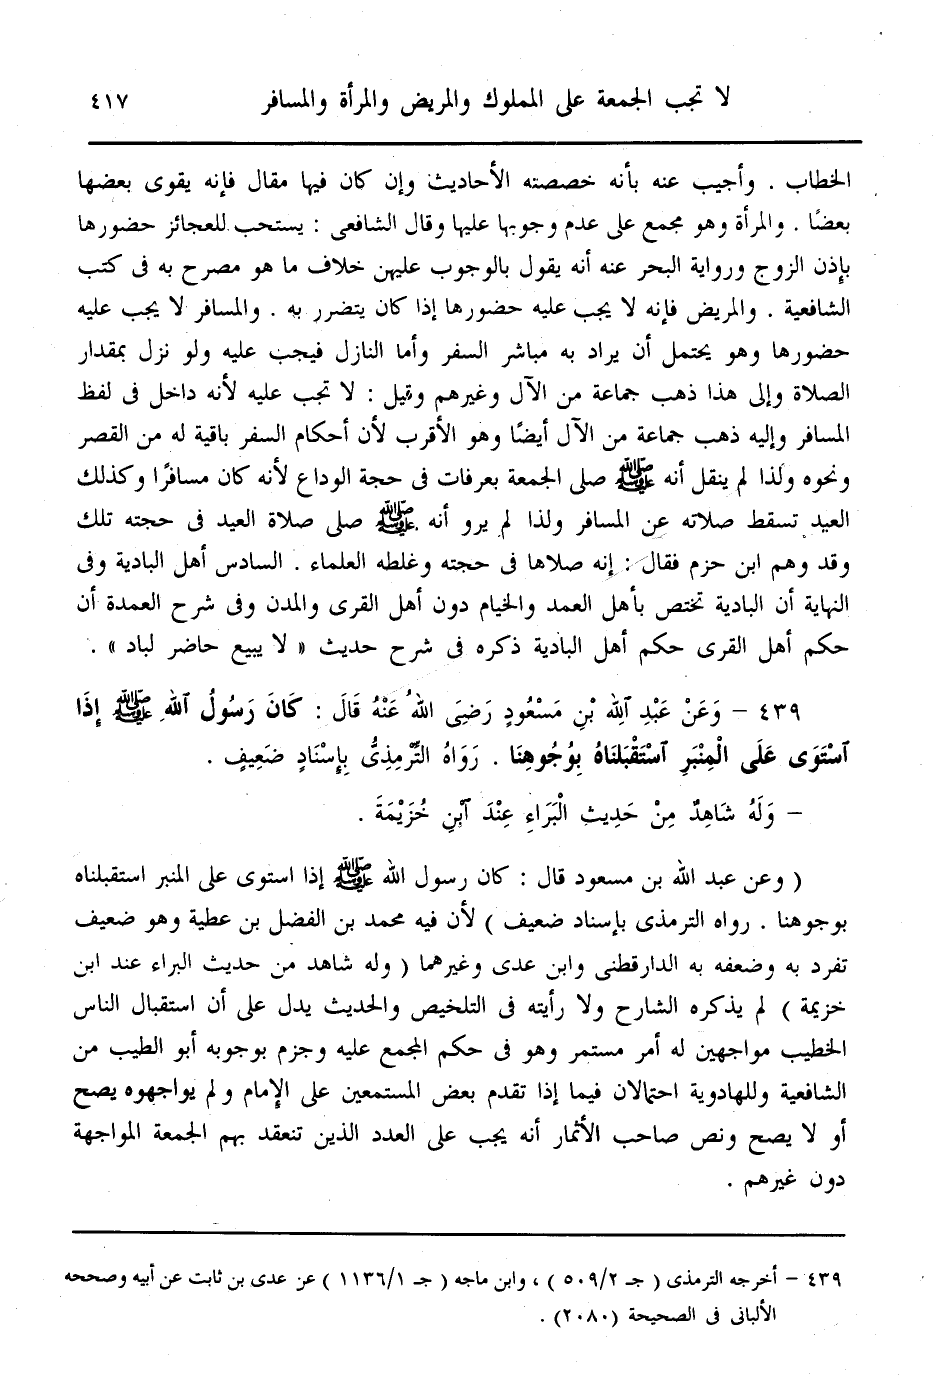 لا تجب الجمعة على المملوك والمريض والمرأة والمسافر ٤١٧
الخطاب . وأجيب عنه بأنه خصصته الأحاديث وإن كان فيها مقال فإنه يقوى بعضها
بعضًا . والمرأة وهو مجمع على عدم وجوبها عليها وقال الشافعى : يستحب للعجائز حضورها
بإذن الزوج ورواية البحر عنه أنه يقول بالوجوب عليهن خلاف ما هو مصرح به فى كتب
الشافعية . والمريض فإنه لا يجب عليه حضورها إذا كان يتضرر به . والمسافر لا يجب عليه
حضورها وهو يحتمل أن يراد به مباشر السفر وأما النازل فيجب عليه ولو نزل بمقدار
الصلاة وإلى هذا ذهب جماعة من الآل وغيرهم وقيل : لا تجب عليه لأنه داخل فى لفظ
المسافر وإليه ذهب جماعة من الآل أيضًا وهو الأقرب لأن أحكام السفر باقية له من القصر
ونحوه ولذا لم ينقل أنه ﷺ صلى الجمعة بعرفات فى حجة الوداع لأنه كان مسافرًا وكذلك
العيد تسقط صلاته عن المسافر ولذا لم يرو أنه ﷺ صلى صلاة العيد فى حجته تلك
وقد وهم ابن حزم فقال : إنه صلاها فى حجته وغلطه العلماء . السادس أهل البادية وفى
النهاية أن البادية تختص بأهل العمد والخيام دون أهل القرى والمدن وفى شرح العمدة أن
حكم أهل القرى حكم أهل البادية ذكره فى شرح حديث « لا يبيع حاضر لباد » .
٤٣٩ – وَعَنْ عَبْدِ ٱللهِ بْنِ مَسْعُودٍ رَضِىَ اللهُ عَنْهُ قَالَ : كَانَ رَسُولُ ٱللهِ ﷺ إِذَا
ٱسْتَوَى عَلَى الْمِنْبَرِ ٱسْتَقْبَلنَاهُ بِوُجُوهِنَا . رَوَاهُ التِّرْمِذِىُّ بِإِسْنَادٍ ضَعِيفٍ .
– وَلَهُ شَاهِدٌ مِنْ حَدِيثِ الْبَرَاءِ عِنْدَ ٱبْنِ خُزَيْمَةَ .
( وعن عبد الله بن مسعود قال : كان رسول الله ﷺ إذا استوى على المنبر استقبلناه
بوجوهنا . رواه الترمذى بإسناد ضعيف ) لأن فيه محمد بن الفضل بن عطية وهو ضعيف
تفرد به وضعفه به الدارقطنى وابن عدى وغيرهما ( وله شاهد من حديث البراء عند ابن
خزيمة ) لم يذكره الشارح ولا رأيته فى التلخيص والحديث يدل على أن استقبال الناس
الخطيب مواجهين له أمر مستمر وهو فى حكم المجمع عليه وجزم بوجوبه أبو الطيب من
الشافعية وللهادوية احتمالان فيما إذا تقدم بعض المستمعين على الإمام و لم يواجهوه يصح
أو لا يصح ونص صاحب الأثمار أنه يجب على العدد الذين تنعقد بهم الجمعة المواجهة
دون غيرهم .
٤٣٩ – أخرجه الترمذى ( جـ ٥٠٩/٢ ) ، وابن ماجه ( جـ ١١٣٦/١ ) عن عدى بن ثابت عن أبيه وصححه
الألبانى فى الصحيحة (٢٠٨٠) .